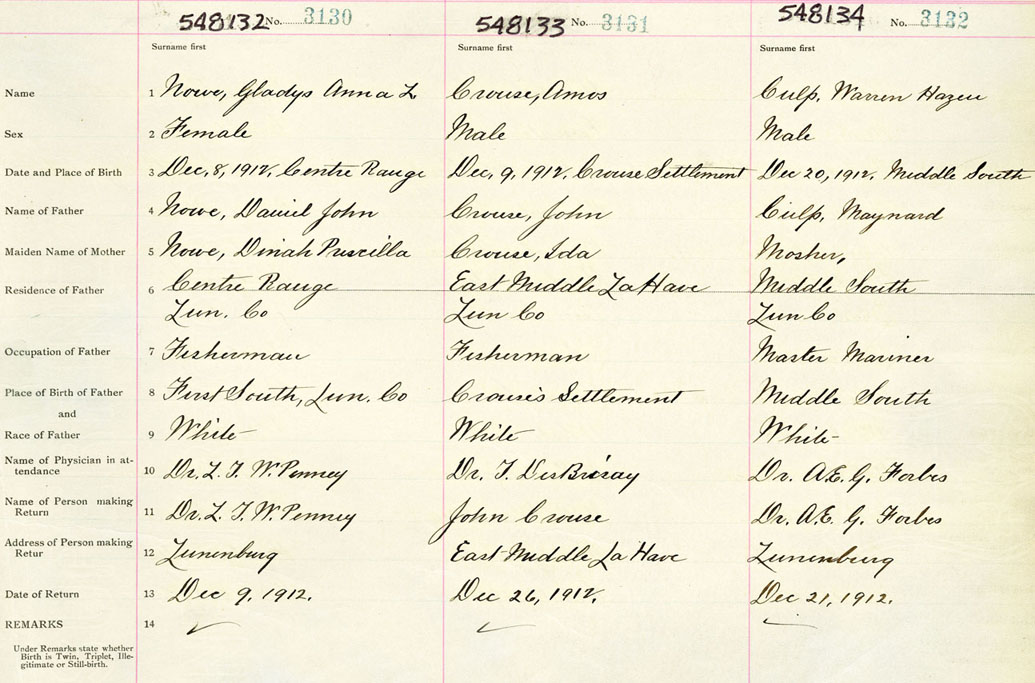 548132 No. 3130 548133 No. 3131 548134 No. 3132
Surname first Surname first Surname first
Name 1 Nowe, Gladys Anna L Crouse, Amos Culp, Warren Hazen
Sex 2 Female Male Male
Date and Place of Birth 3 Dec. 8, 1912, Centre Range Dec. 9, 1912, Crouse Settlement Dec 20, 1912, Middle South
Name of Father 4 Nowe, Daniel John Crouse, John Culp, Maynard
Maiden Name of Mother 5 Nowe, Dinah Priscilla Crouse, Ida Mosher,
Residence of Father 6 Centre Range East Middle La Have Middle South
Lun. Co Lun Co Lun Co
Occupation of Father 7 Fisherman Fisherman Master Mariner
Place of Birth of Father 8 First South, Lun. Co Crouse's Settlement Middle South
and
Race of Father 9 White White White
Name of Physician in at-
tendance 10 Dr. L. T. W. Penney Dr. T. DesBrisay Dr. A.E. G. Forbes
Name of Person making
Return 11 Dr. L. T. W. Penney John Crouse Dr. A.E. G. Forbes
Address of Person making
Retur 12 Lunenburg East Middle La Have Lunenburg
Date of Return 13 Dec 9, 1912. Dec 26, 1912. Dec 21, 1912.
REMARKS 14
Under Remarks state whether
Birth is Twin, Triplet, Ille-
gitimate or Still-birth.